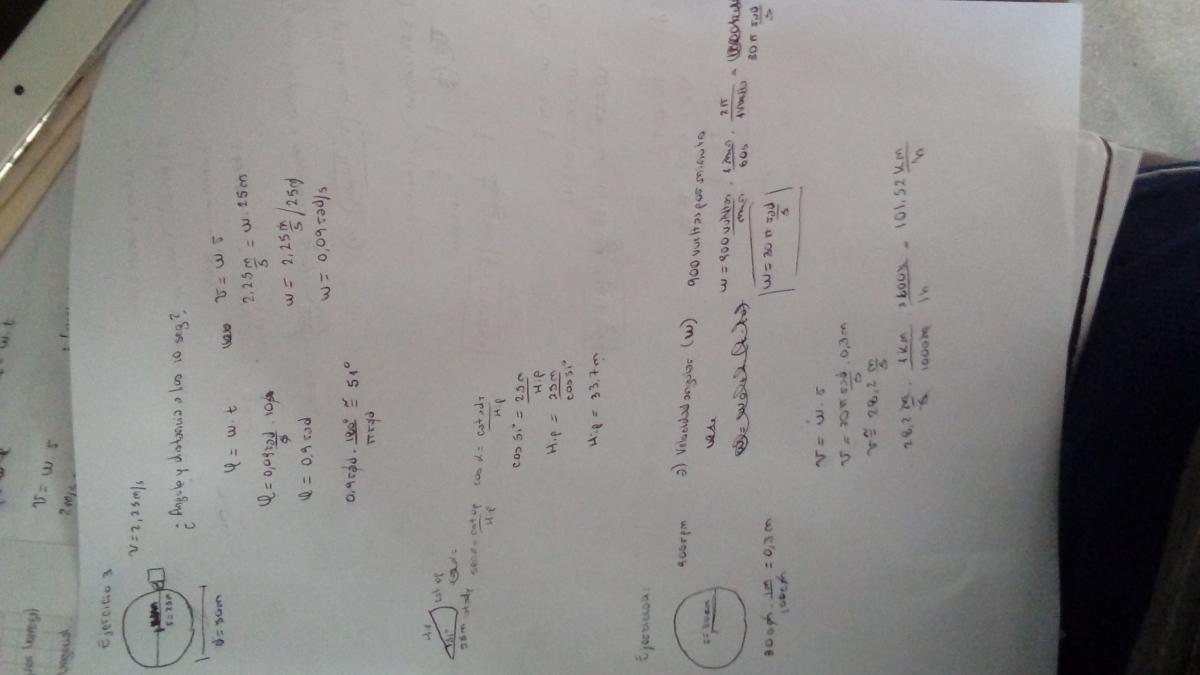 V = w. r
2m/s
Ejercicio 3
V = 2,25 m/s
r = 25m
d = 50m
¿Angulo y distancia a los 10 seg?
φ = w. t
φ = 0,09 rad/s . 10s
φ = 0,9 rad
0,9 rad . 180°/π rad ≅ 51°
v = w. r
2,25 m/s = w. 25m
w = 2,25 m/s / 25m
w = 0,09 rad/s
Hip
cat op
51°
25m
cos α = cat ady / Hip
cos 51° = 25m / Hip
Hip = 25m / cos 51°
Hip = 33,7 m
Ejercicio:
r = 30cm
900 rpm
300cm . 1m/100cm = 0,3m
a) Velocidad angular (w)
900 vueltas por minuto
w = 900 vueltas/min . 1 min/60s . 2π/1 vuelta =
30 π rad/s
w = 30 π rad/s
v = w. r
v = 30π rad/s . 0,3m
v ≅ 28,2 m/s
28,2 m/s . 1 km/1000m . 3600s/1h = 101,52 km/h